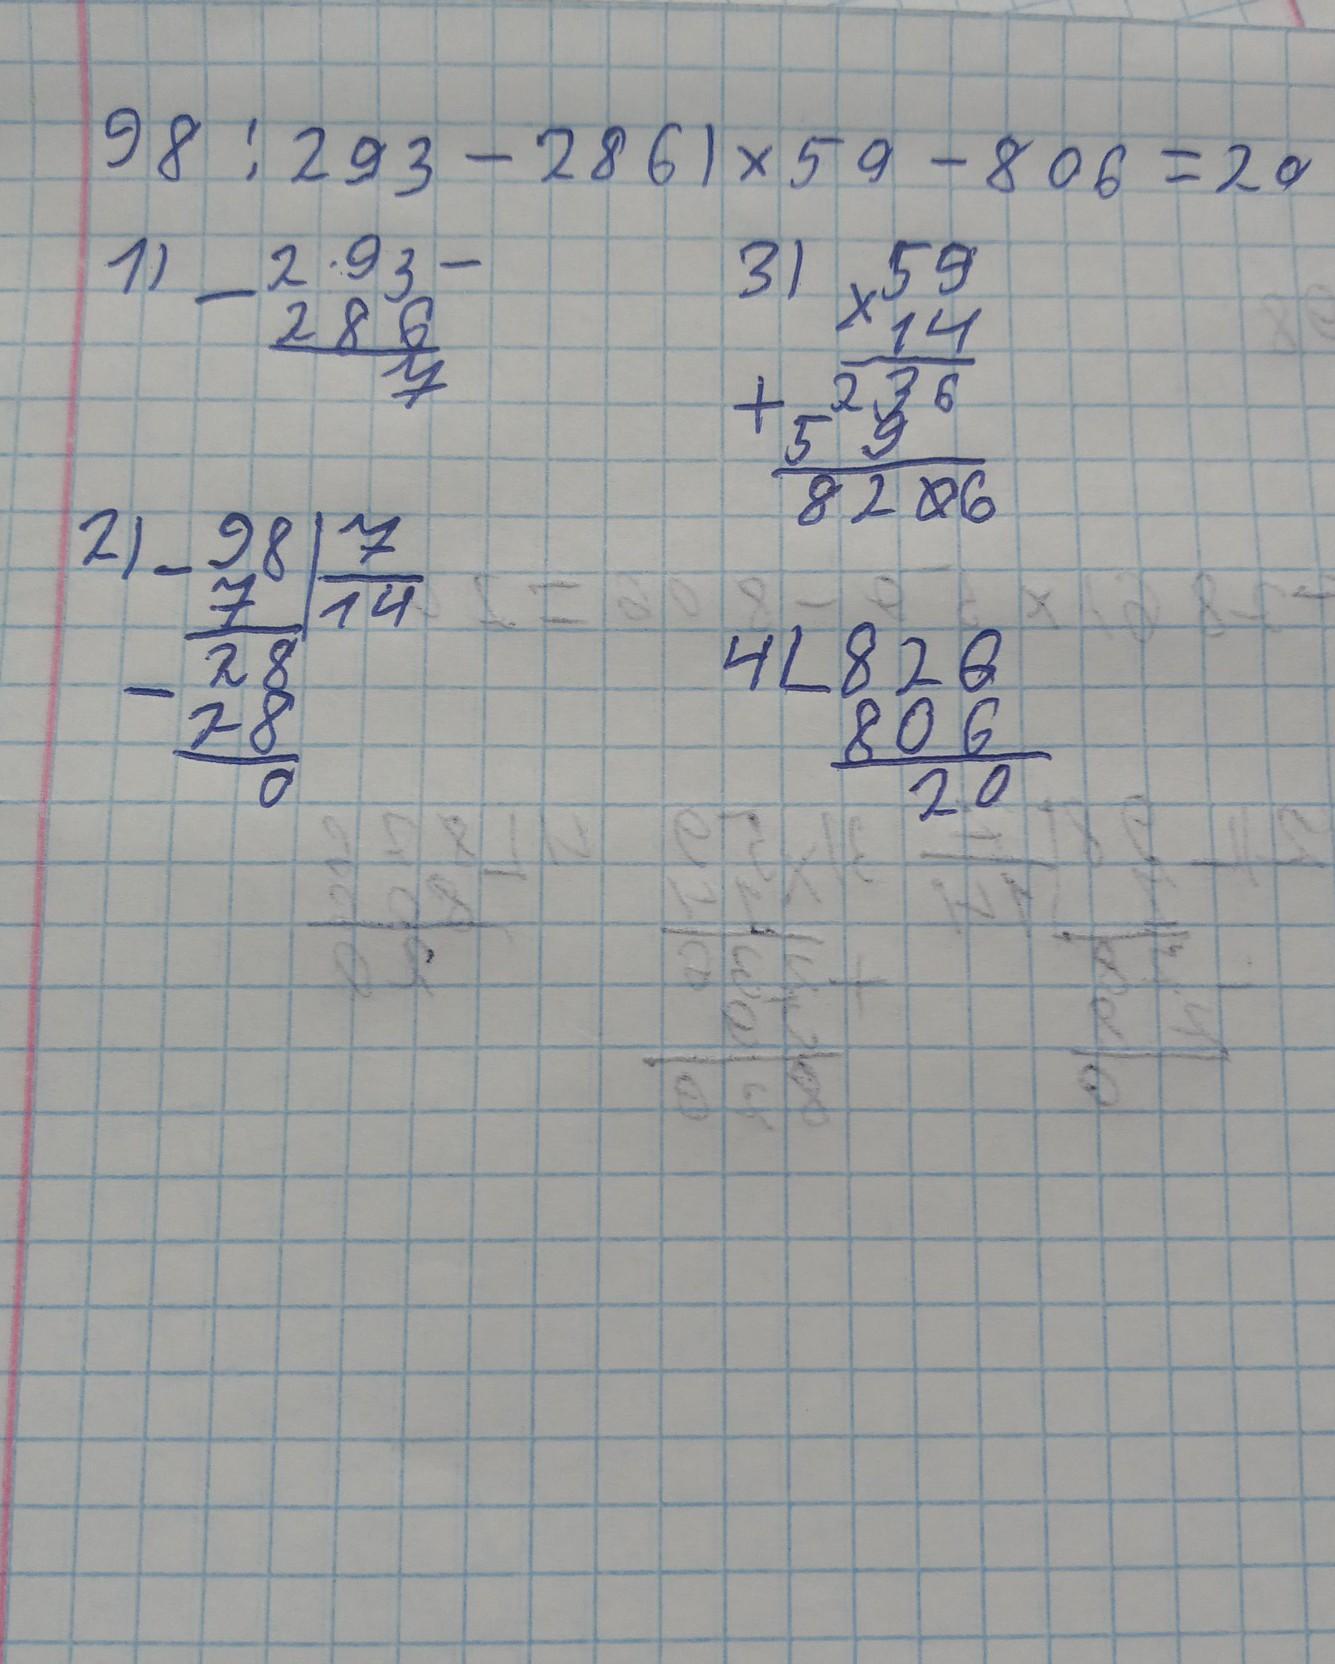 98 : 293 - 286) × 59 - 806 = 20
1) - 293 -
286
7
2) - 98 | 7
7 14
28
- 28
0
3) 59
× 14
236
+ 59
826
4) - 826
806
20